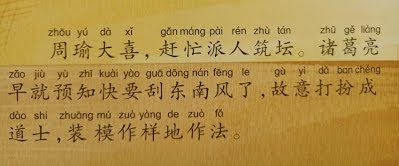 zhōu yú dà xǐ gǎn máng pài rén zhù tán zhū gě liàng
周瑜大喜,赶忙派人筑坛。诸葛亮
zǎo jiù yù zhī kuài yào guā dōng nán fēng le gù yì dǎ ban chéng
早就预知快要刮东南风了,故意打扮成
dào shi zhuāng mú zuò yàng de zuò fǎ
道士,装模作样地作法。